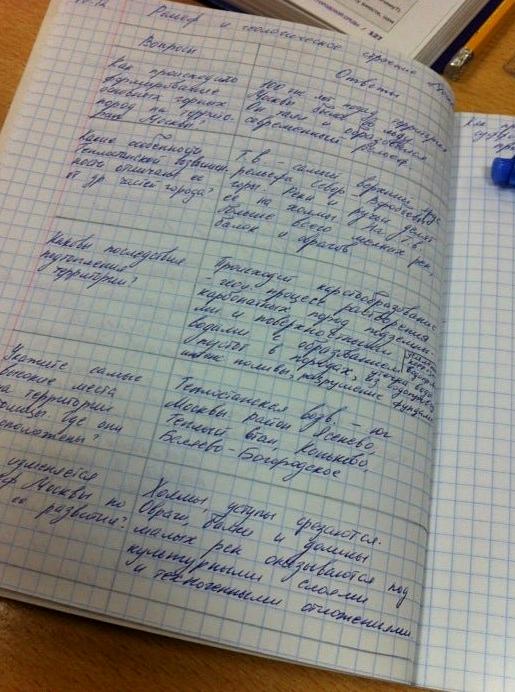 Рельеф и геологическое строение
Вопросы
Ответы
Как происходило
формирование
основных горных
пород на террито-
рии Москвы?
тыс. лет назад территория
Москвы была во льду
Он таял и образовался
современный рельеф.
Какие особенности
Теплостанской возвышен.
отличают её
от др. частей города?
Т.в. - самый верхний ярус
рельефа
реки и ручьи делят
её на холмы. На Т.в.
больше всего мелких рек,
балок и оврагов
Каковы последствия
подтопления
территории?
Происходит карстообразование
- геол. процесс растворения
карбонатных пород подземны-
ми и поверхностными
водами с образованием
пустот в породах,
поливы, разрушение фундам.
Укажите самые
высокие места
на территории
столицы где они
расположены?
Теплостанская возв. - юг
Москвы район Ясенево,
Теплый стан Коньково,
Беляево-Богородское
изменяется
Москвы по
её развития?
Холмы, уступы срезаются.
Овраги, балки и долины
малых рек оказываются под
культурными слоями
и техногенными отложениями